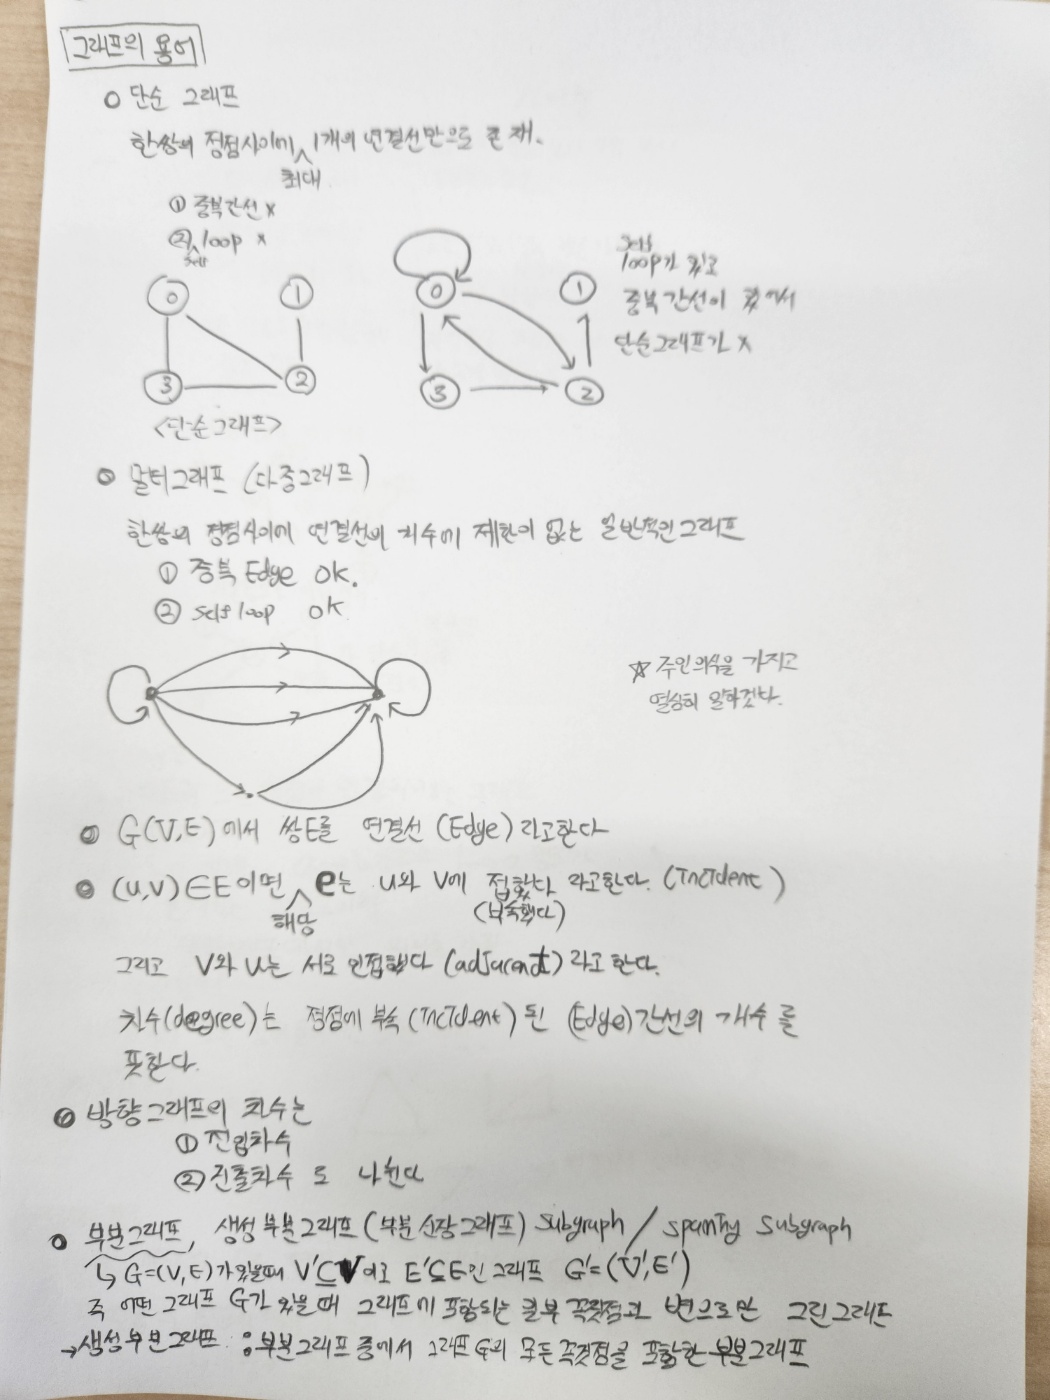 그래프의 용어
○ 단순 그래프
한쌍의 정점사이에 최대 1개의 연결선만으로 존재.
① 중복간선 x
② self loop x
0 1
3 2
<단순그래프>
0 1
3 2
self
loop가 있고
중복간선이 있어서
단순그래프가 x
○ 멀티그래프 (다중그래프)
한쌍의 정점사이에 연결선의 개수에 제한이 없는 일반적인 그래프
① 중복 Edge OK.
② self loop OK
☆ 주인의식을 가지고
열심히 일하겠다.
○ G(V,E)에서 쌍E를 연결선 (Edge) 라고한다
○ (u,v)∈E 이면 해당 e는 u와 v에 접했다 라고한다. (Incident)
(부속했다)
그리고 v와 u는 서로 인접했다 (adjacent) 라고 한다.
차수(degree)는 정점에 부속 (Incident) 된 (Edge) 간선의 개수를
뜻한다.
○ 방향그래프의 차수는
① 진입차수
② 진출차수 로 나뉜다
○ 부분그래프, 생성부분그래프 (부분신장그래프) Subgraph / spanning subgraph
↳ G=(V,E)가 있을때 V'⊆V 이고 E'⊆E인 그래프 G'=(V',E')
즉 어떤 그래프 G가 있을 때 그래프에 포함되는 일부 꼭짓점과 변으로만 그린 그래프
→ 생성부분그래프 : 부분그래프 중에서 그래프 G의 모든 꼭짓점을 포함한 부분그래프